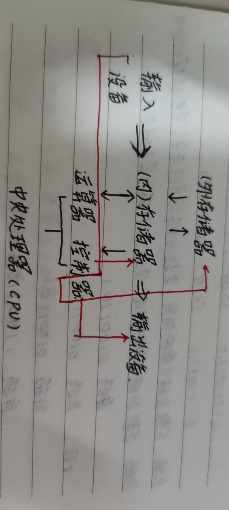 (外)存储器
↓ ↑
输入设备 ⇒ (内)存储器 ⇒ 输出设备
↕ ↓
运算器 控制器
中央处理器(CPU)